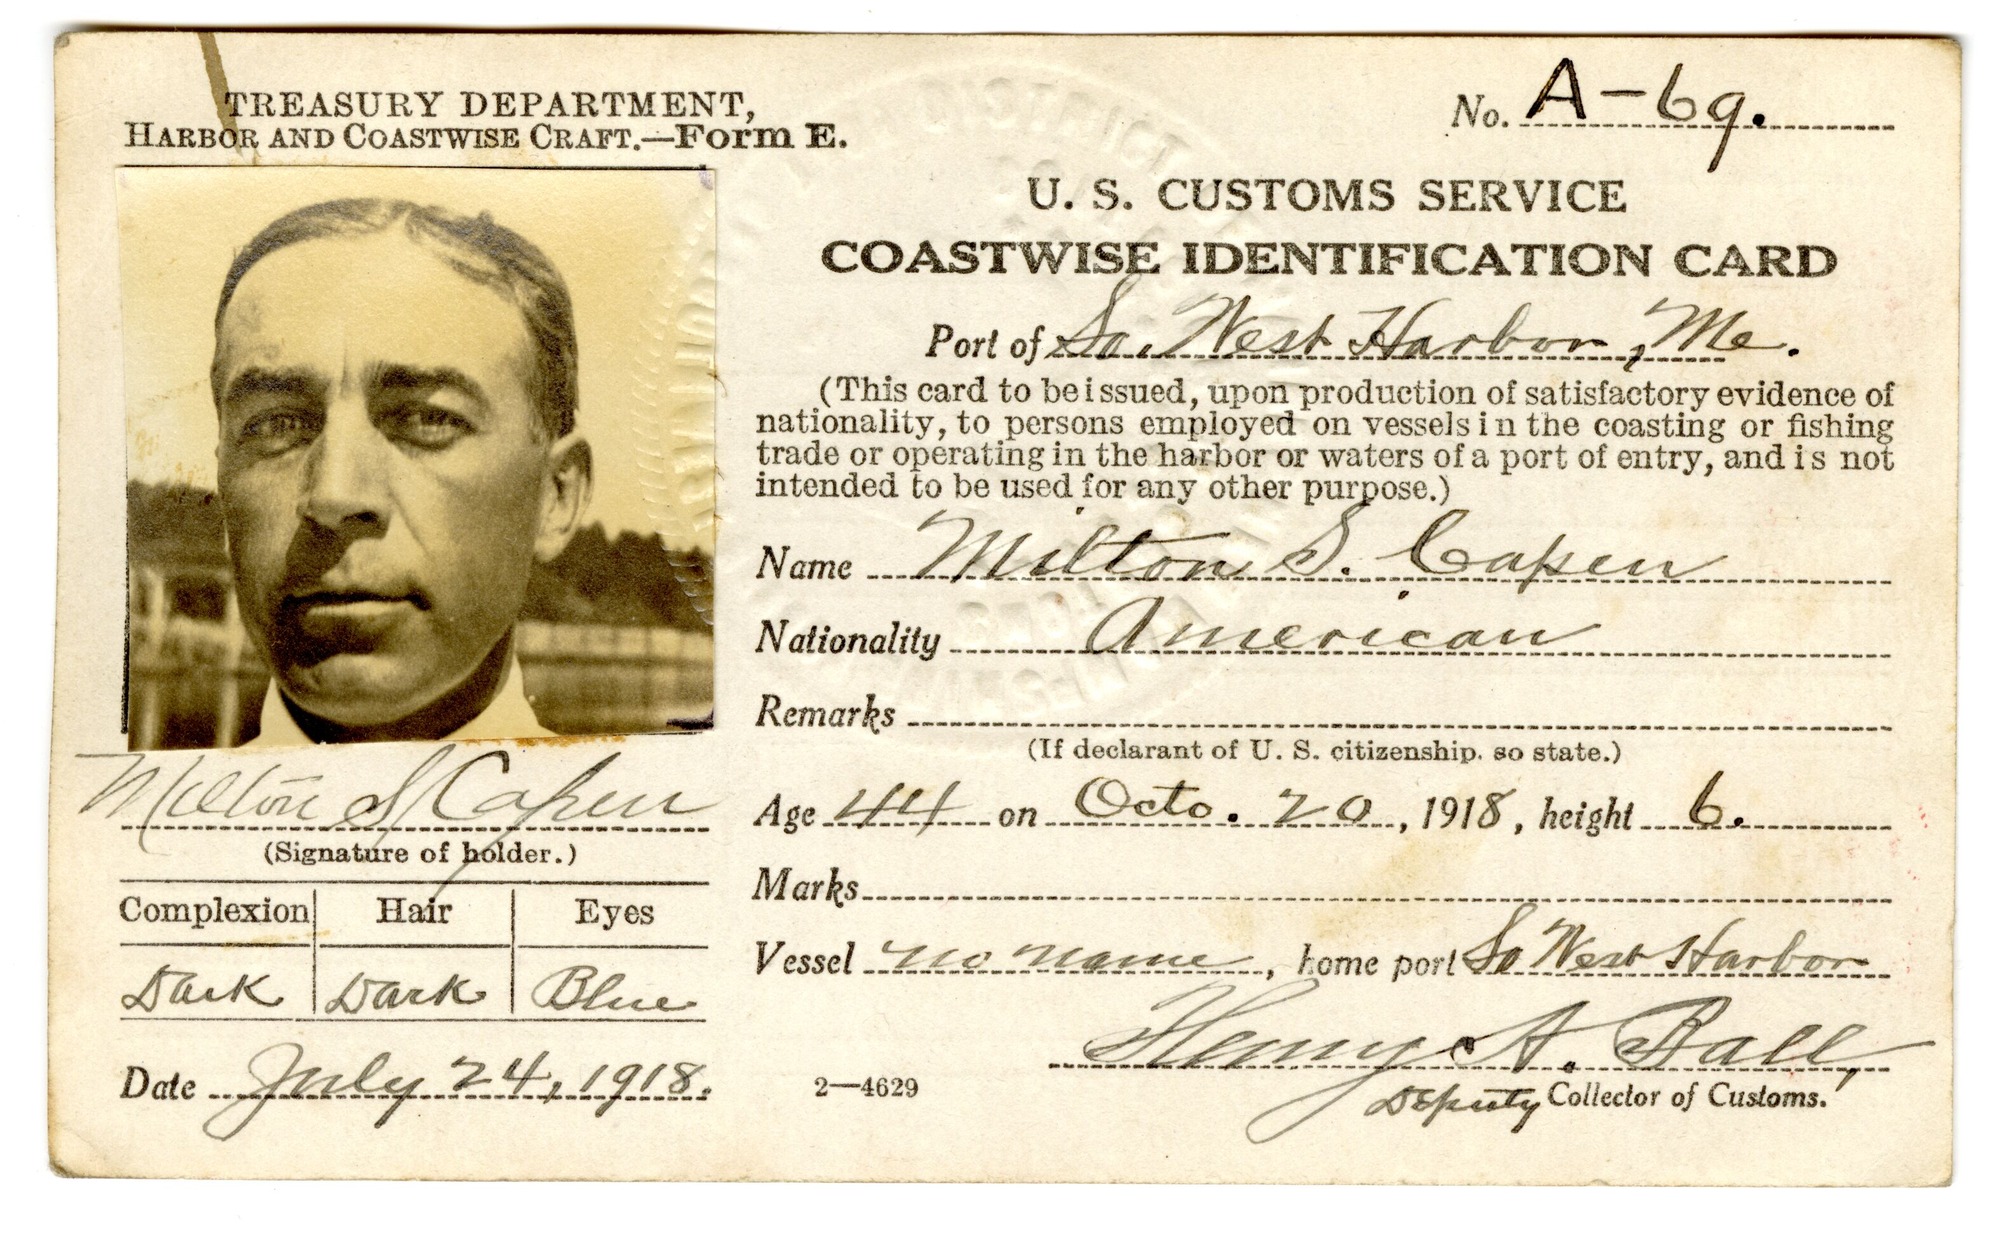 TREASURY DEPARTMENT,
HARBOR AND COASTWISE CRAFT.—Form E.
No. A-69.
U. S. CUSTOMS SERVICE
COASTWISE IDENTIFICATION CARD
Port of So. West Harbor, Me.
(This card to be issued, upon production of satisfactory evidence of
nationality, to persons employed on vessels in the coasting or fishing
trade or operating in the harbor or waters of a port of entry, and is not
intended to be used for any other purpose.)
Name Milton S. Capen
Nationality American
Remarks
(If declarant of U. S. citizenship, so state.)
Age 44 on Octo. 20, 1918, height 6.
Marks
Vessel no name, home port So West Harbor
Henry A. Ball,
Deputy Collector of Customs.
Milton S Capen
(Signature of holder.)
Complexion Hair Eyes
Dark Dark Blue
Date July 24, 1918.
2—4629